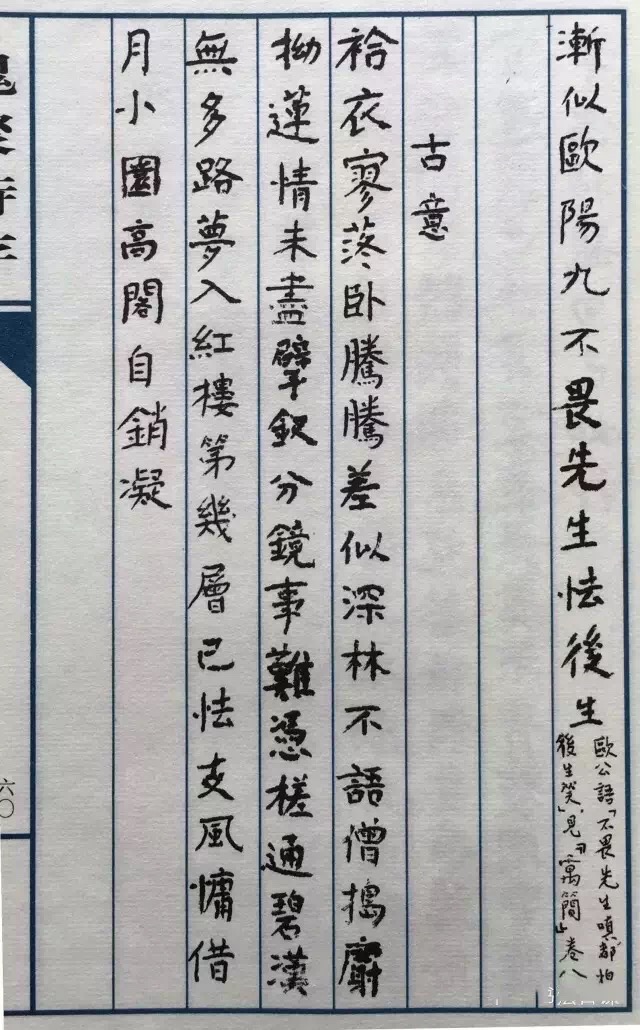 漸似歐陽九不畏先生怯後生
歐公語「不畏先生嗔却怕
後生笑」見『寓簡』卷八
古意
袷衣寥落卧騰騰差似深林不語僧搗麝
拗蓮情未盡擘釵分鏡事難憑槎通碧漢
無多路夢入紅樓第幾層已怯支風慵借
月小園高閣自銷凝
槐聚詩存
六〇